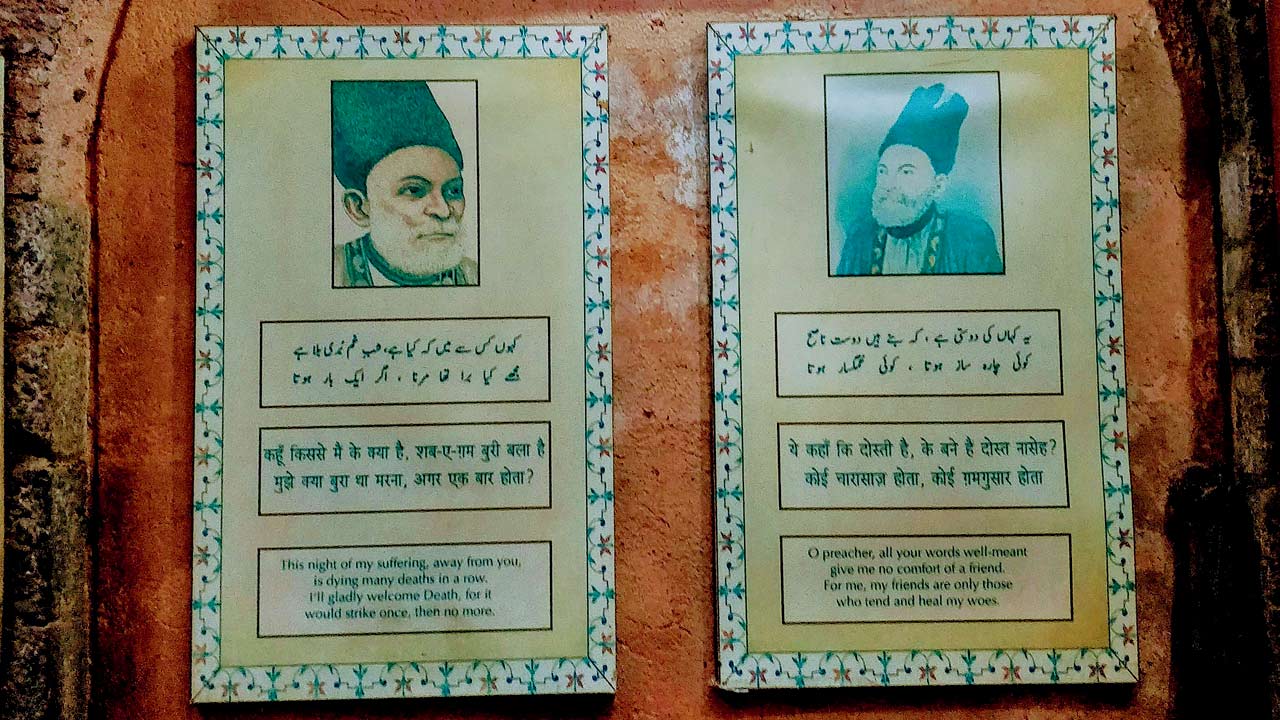 کہوں کس سے میں کہ کیا ہے، شب غم بُری بلا ہے
مجھے کیا برا تھا مرنا ، اگر ایک بار ہوتا
कहूँ किससे मै के क्या है, शब-ए-ग़म बुरी बला है
मुझे क्या बुरा था मरना, अगर एक बार होता?
This night of my suffering, away from you,
is dying many deaths in a row.
I'll gladly welcome Death, for it
would strike once, then no more.
یہ کہاں کی دوستی ہے ، کہ بنے ہیں دوست ناصح
کوئی چارہ ساز ہوتا ، کوئی غمگسار ہوتا
ये कहाँ कि दोस्ती है, के बने है दोस्त नासेह?
कोई चारासाज़ होता, कोई ग़मगुसार होता
O preacher, all your words well-meant
give me no comfort of a friend.
For me, my friends are only those
who tend and heal my woes.